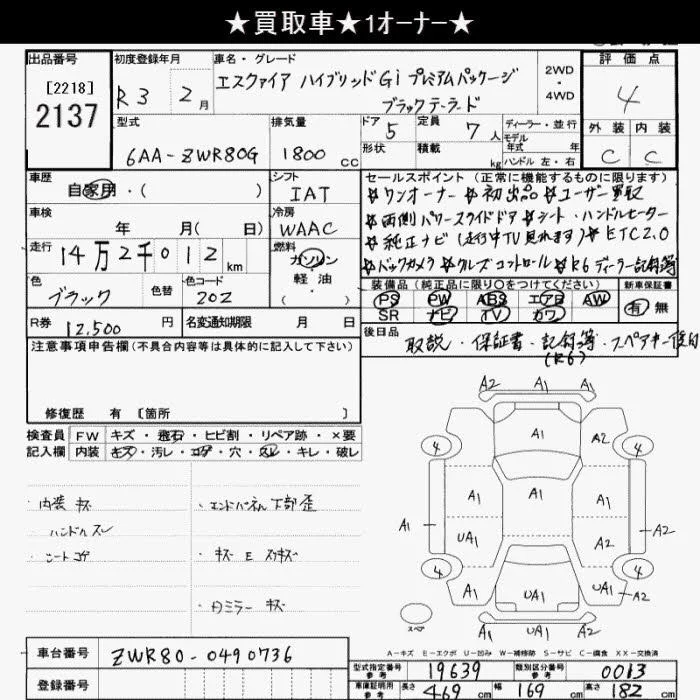 ★買取車★1オーナー★
出品番号
[2218]
2137
初度登録年月
R3 2月
車名・グレード
エスクァイア ハイブリッドGi プレミアムパッケージ
ブラックテーラード
2WD
・
4WD
評価点
4
外装 内装
C C
型式
6AA-ZWR80G
排気量
1800 CC
ドア
5
定員
7人
形状
積載
kg
ディーラー・並行
モデル
年式 年
ハンドル 左・右
車歴
自家用・( )
シフト
IAT
車検
年 月( 日)
冷房
WAAC
走行
14万2千012km
燃料
ガソリン
軽油
・( )
色
ブラック
色替
色コード
202
R券
12,500円
名変通知期限 月 日
セールスポイント(正常に機能するものに限ります)
☆ワンオーナー ☆初出品 ☆ユーザー買取
☆両側パワースライドドア ☆シート・ハンドルヒーター
☆純正ナビ(走行中TV見れます) ☆ETC2.0
☆バックカメラ ☆クルーズコントロール ☆R6ディーラー記録簿
装備品(純正品に限り○をつけてください)
新車保証書
PS PW ABS エアB AW
SR ナビ TV カワ
有・無
後日品
取説・保証書・記録簿・スペアキー後日
(R6)
注意事項申告欄(不具合内容等は具体的に記入して下さい)
修復歴 有 〔箇所 〕
検査員
記入欄
FW キズ・飛石・ヒビ割・リペア跡・×要
内装 キズ・汚レ・コゲ・穴・スレ・キレ・破レ
・内装 キズ
ハンドルスレ
シートコゲ
・エンドパネル下部歪
・キズ E スリキズ
・内ミラー キズ
A2 A1 A1
A1 A2
4 4
A1 A1 A1
A1 A2
UA1 A2
4 4
UA1 UA2
スペア
A1 UA1 A2
A-キズ E-エクボ U-凹み W-補修跡 S-サビ C-腐食 XX-交換済
車台番号
ZWR80-0490736
登録番号
型式指定番号
参考
19639
類別区分番号
参考
0013
車庫証明用
参考
長さ 469 cm 幅 169 cm 高さ 182 cm